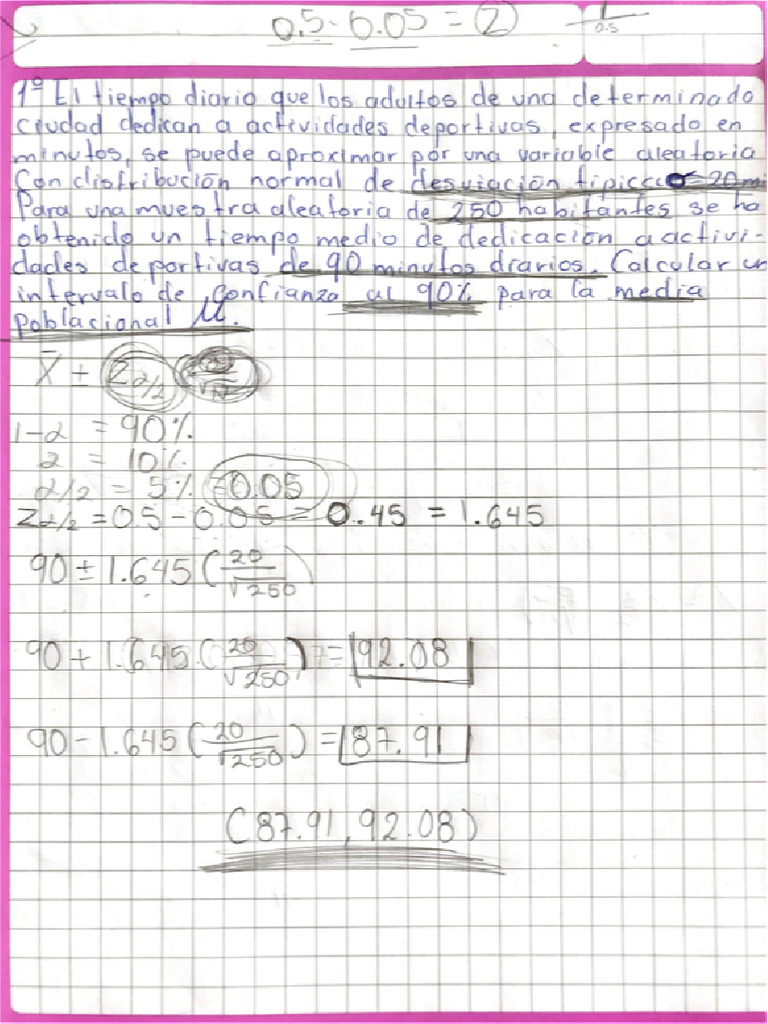 0.5 - 0.05 = Z 1/0.5
1º El tiempo diario que los adultos de una determinado
ciudad dedican a actividades deportivas, expresado en
minutos, se puede aproximar por una variable aleatoria
Con distribución normal de desviación típica σ=20 mi
Para una muestra aleatoria de 250 habitantes se ha
obtenido un tiempo medio de dedicación a activi-
dades deportivas de 90 minutos diarios. Calcular un
intervalo de confianza al 90% para la media
Poblacional μ.
X̄ ± Zα/2
1-α = 90%
α = 10%
α/2 = 5% = 0.05
Zα/2 = 0.5 - 0.05 = 0.45 = 1.645
90 ± 1.645 (20/√250)
90 + 1.645 (20/√250) = 92.08
90 - 1.645 (20/√250) = 87.91
(87.91, 92.08)